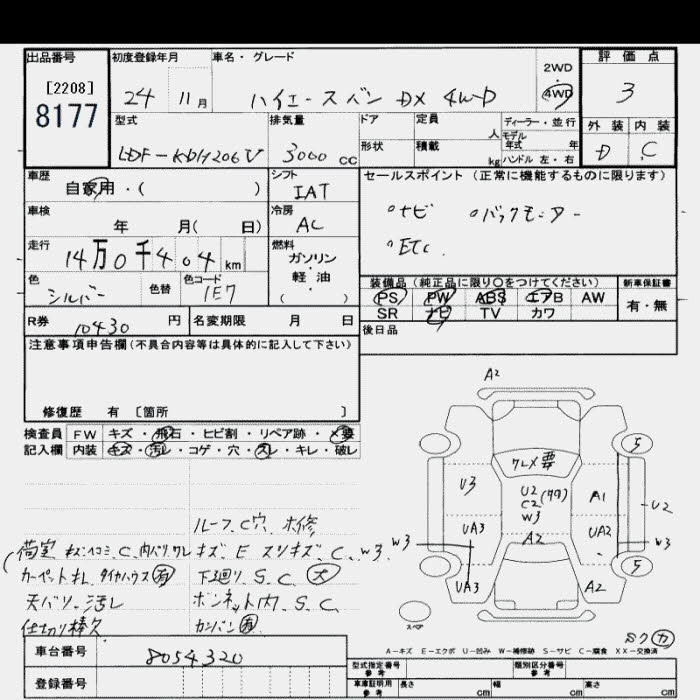 出品番号
[2208]
8177
初度登録年月
24 11月
車名・グレード
ハイエースバン DX 4WD
2WD
・
4WD
評価点
3
外装 内装
D C
型式
LDF-KDH206V
排気量
3000cc
ドア
形状
定員
人
積載
kg
ディーラー・並行
モデル
年式 年
ハンドル 左・右
車歴
自家用・( )
シフト
IAT
セールスポイント(正常に機能するものに限ります)
°ナビ °バックモニター
°ETC.
車検
年 月( 日)
冷房
AC
走行
14万0千404km
燃料
ガソリン
・
軽・油
( )
色
シルバー
色替
色コード
1E7
装備品(純正品に限り〇をつけてください)
PS PW ABS エアB AW
SR ナビ TV カワ
新車保証書
有・無
R券 10430円
名変期限 月 日
後日品
注意事項申告欄(不具合内容等は具体的に記入して下さい)
修復歴 有 〔箇所 〕
検査員 FW キズ・飛石・ヒビ割・リペア跡・×要
記入欄 内装 キズ・汚れ・コゲ・穴・スレ・キレ・破レ
ルーフ、C穴、補修
荷室 キズ、ヘコミ、C、内バリワレ
キズ、E スリキズ、C、W3
カーペットナシ、タイヤハウス有
下廻り、S、C、大
天バリ、汚レ
ボンネット内、S、C
仕切り棒欠
カンバン有
A2
ワレ×要
U3
U2
C2(タワ)
W3
A1
U2
UA3
W3
A2
UA2
W3
UA3
A2
5
5
スペア
A-キズ E-エクボ U-凹み W-補修跡 S-サビ C-腐食 XX-交換済
車台番号 8054320
登録番号
型式指定番号
参考
類別区分番号
参考
車庫証明用
参考
長さ cm
幅 cm
高さ cm